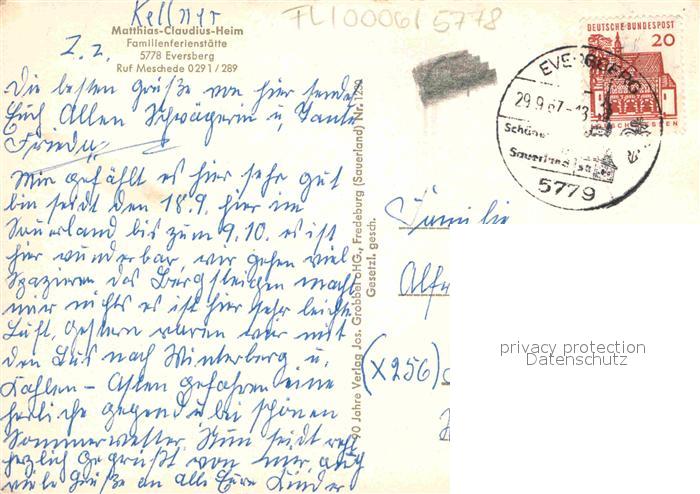 Kellner
TL100061 5778
Matthias-Claudius-Heim
Familienferienstätte
5778 Eversberg
Ruf Meschede 0291/289
Z. Z.
Die besten Grüße von hier sendet
Euch Allen Schwägerin u, Tante
Frieda
Mir gefählt es hier sehr gut
bin seidt den 18.9. hier im
Sauerland bis zum 9.10. es ist
hier wunderbar wir gehen viel
Spazieren das Bergsteigen macht
mir nichts es ist hier sehr leichte
Luft, gestern waren wir mit
den Bus nach Winterberg u,
Kahlen-Asten gefahren eine
herliche gegend u bei schönen
Sommerwetter. Nun seidt recht
herzlich gegrüßt von mir auch
viele Grüße an alle Eure Kinder
90 Jahre Verlag Jos. Grobbel oHG., Fredeburg (Sauerland) Nr. 1280
Gesetzl. gesch.
DEUTSCHE BUNDESPOST
20
EVERSBERG
29.9.67-13
Schöne
Sauerland
5779
Familie
Alfr
(X256)
privacy protection
Datenschutz